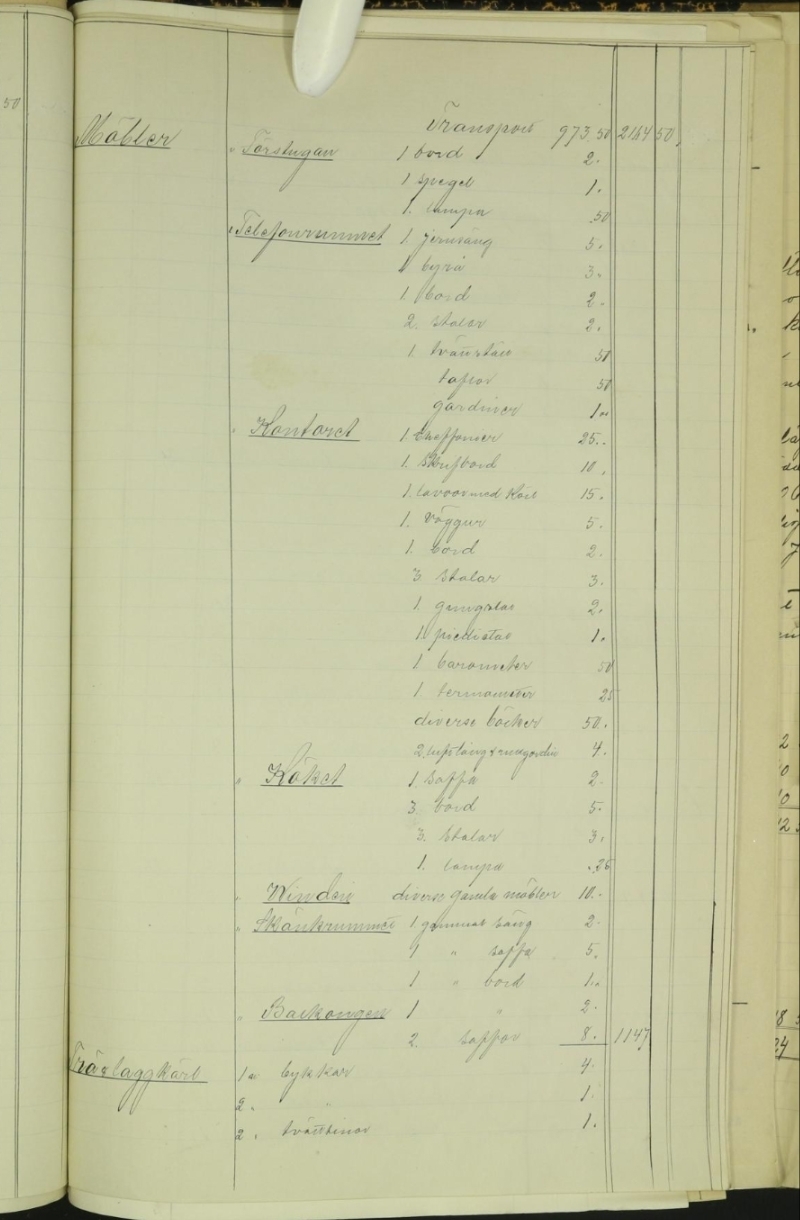 50
Transport 973 50 2164 50
Möbler " Förstugan 1 bord 2.
1 spegel 1.
1. lampa .50
" Telefonrummet 1. jernsäng 5.
1 byrå 3.
1. bord 2.
2. stolar 2.
1. 50
taflor 50
gardiner 1.
" Kontoret 1 chiffonier 25.
1. skrifbord 10.
1. lavoar med 15.
1. väggur 5.
1. bord 2.
3 stolar 3.
1. gungstol 2.
1. piedestal 1.
1 barometer 50
1 termometer 25
diverse böcker 50.
2. 4.
" Köket 1 soffa 2.
3. bord 5.
3. stolar 3.
1. lampa .25
" Winden diverse gamla möbler 10.
" Skänkrummet 1 gammal säng 2.
1 " soffa 5.
1 " bord 1.
" Balkongen 1 " 2.
2. soffor 8. 1147
Trä & laggkärl 1 st bykkar 4.
2 " " 1.
2 " 1.